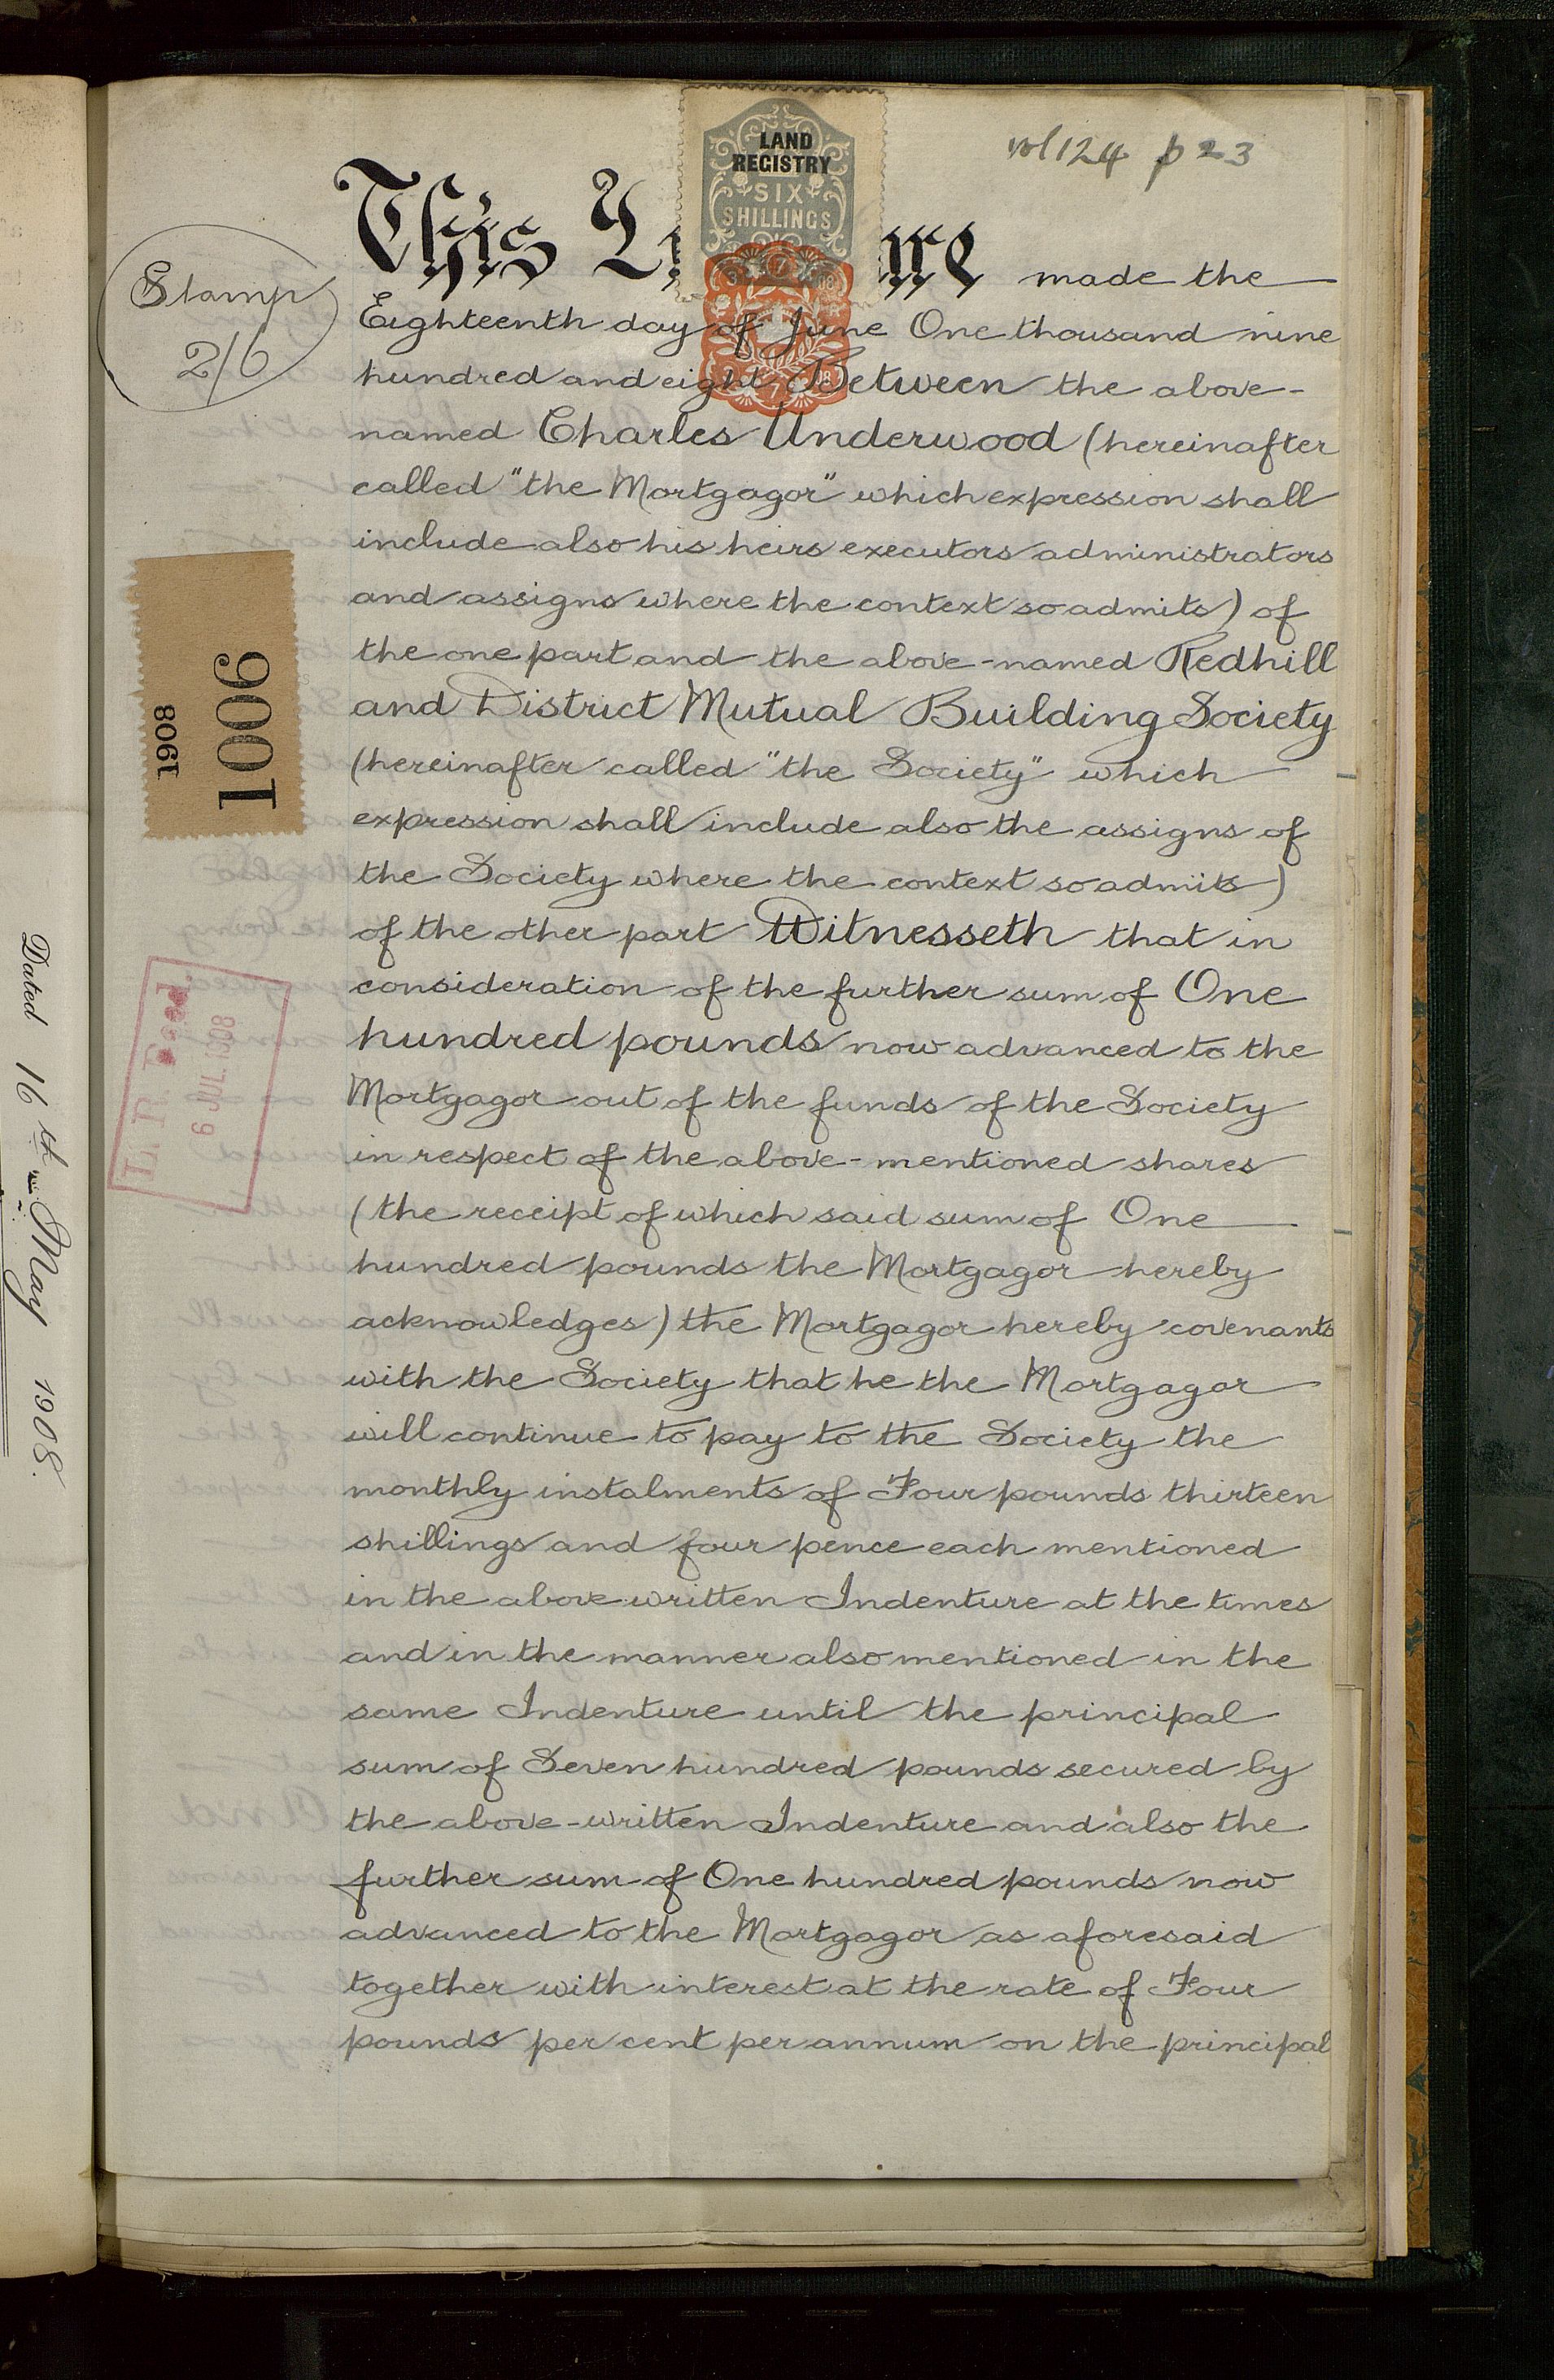 vol 124 p 23
LAND
REGISTRY
SIX
SHILLINGS
Stamp
2/6
1006
1908
6 JUL 1908
Dated 16th May 1908.
This made the
Eighteenth day of June One thousand nine
hundred and eight Between the above-
named Charles Underwood (hereinafter
called "the Mortgagor" which expression shall
include also his heirs executors administrators
and assigns where the context so admits) of
the one part and the above-named Redhill
and District Mutual Building Society
(hereinafter called "the Society" which
expression shall include also the assigns of
the Society where the context so admits)
of the other part Witnesseth that in
consideration of the further sum of One
hundred pounds now advanced to the
Mortgagor out of the funds of the Society
in respect of the above-mentioned shares
(the receipt of which said sum of One
hundred pounds the Mortgagor hereby
acknowledges) the Mortgagor hereby covenants
with the Society that he the Mortgagor
will continue to pay to the Society the
monthly instalments of Four pounds thirteen
shillings and four pence each mentioned
in the above written Indenture at the times
and in the manner also mentioned in the
same Indenture until the principal
sum of Seven hundred pounds secured by
the above-written Indenture and also the
further sum of One hundred pounds now
advanced to the Mortgagor as aforesaid
together with interest at the rate of Four
pounds per cent per annum on the principal